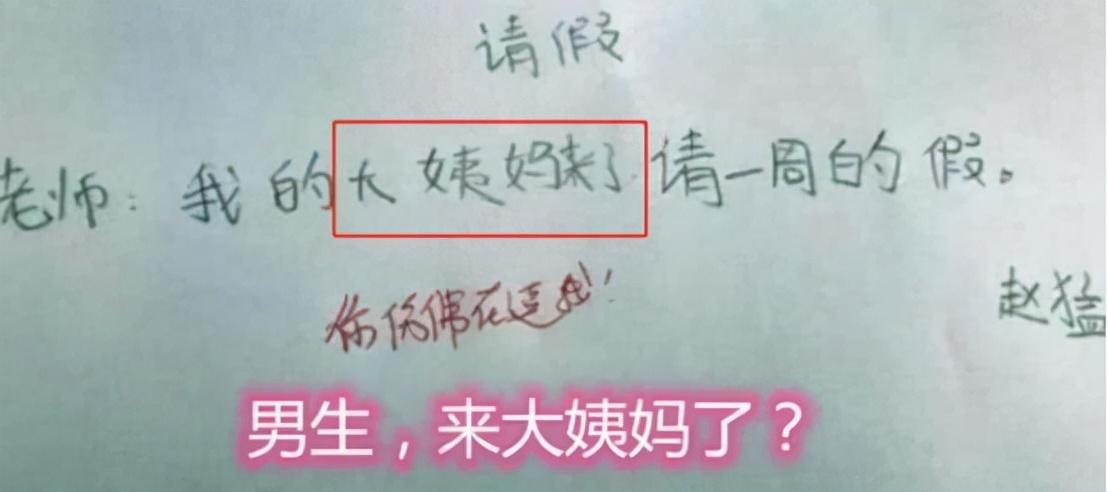 请假
老师：我的大姨妈来了请一周的假。
你仿佛在逗我！
赵猛
男生，来大姨妈了？